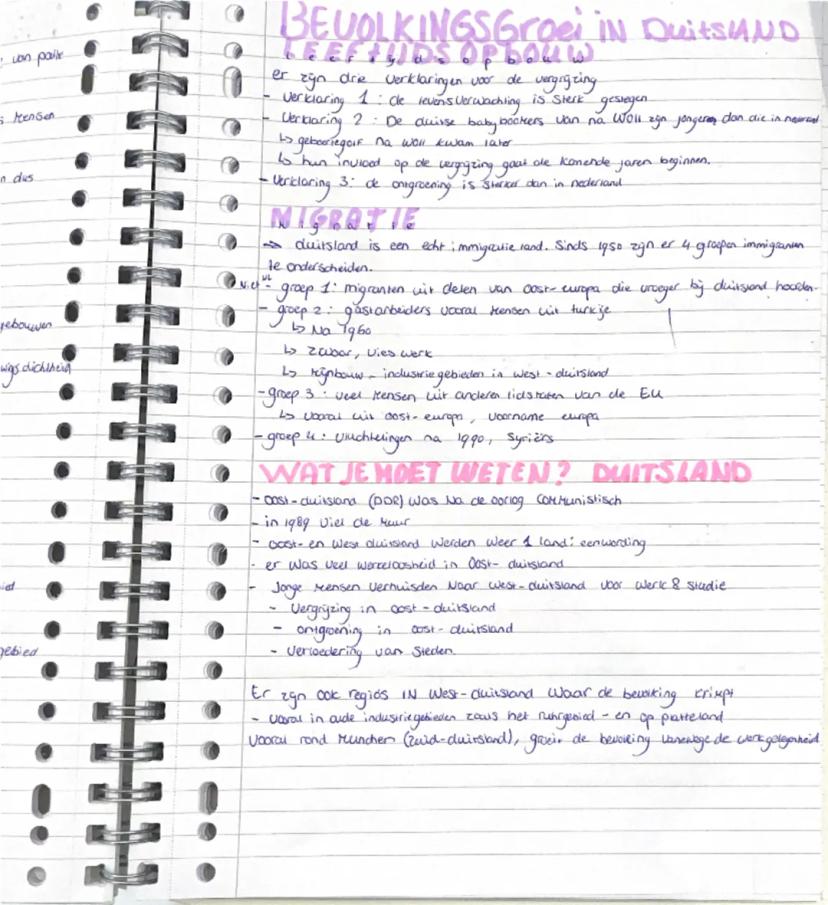 van politi
s mensen
n dus
gebouwen
wgs dichtheid
ied
gebied
BEVOLKINGSGroei iN DuitsLAND
LEEFTIJDSOPBOUW
er zijn drie verklaringen voor de vergrijzing
- verklaring 1 : de levensverwachting is sterk gestegen
- verklaring 2 : De duitse babyboomers van na WOII zijn jongeren dan die in nederland
↳ geboortegolf na WOII kwam later
↳ hun invloed op de vergrijzing gaat de komende jaren beginnen.
- verklaring 3: de ontgroening is sterker dan in nederland
MIGRATIE
→ duitsland is een echt immigratie land. Sinds 1950 zijn er 4 groepen immigranten
te onderscheiden.
- groep 1: migranten uit delen van oost-europa die vroeger bij duitsland hoorden.
- groep 2: gastarbeiders vooral mensen uit turkije
↳ Na 1960
↳ zwaar, vies werk
↳ mijnbouw - industriegebieden in west-duitsland
- groep 3: veel mensen uit anderen lidstaten van de EU
↳ vooral uit oost-europa, voorname europa
- groep 4: vluchtelingen na 1990, Syriërs
WAT JE MOET WETEN? DUITSLAND
- oost-duitsland (DDR) was na de oorlog communistisch
- in 1989 viel de muur
- oost- en west duitsland werden weer 1 land: eenwording
- er was veel werkeloosheid in Oost- duitsland
- Jonge mensen verhuisden naar west-duitsland voor werk & studie
- vergrijzing in oost-duitsland
- ontgroening in oost-duitsland
- verloedering van steden.
Er zijn ook regio's IN west-duitsland waar de bevolking krimpt
- vooral in oude industriegebieden zoals het ruhrgebied - en op platteland
vooral rond munchen (zuid-duitsland), groeit de bevolking vanwege de werkgelegenheid